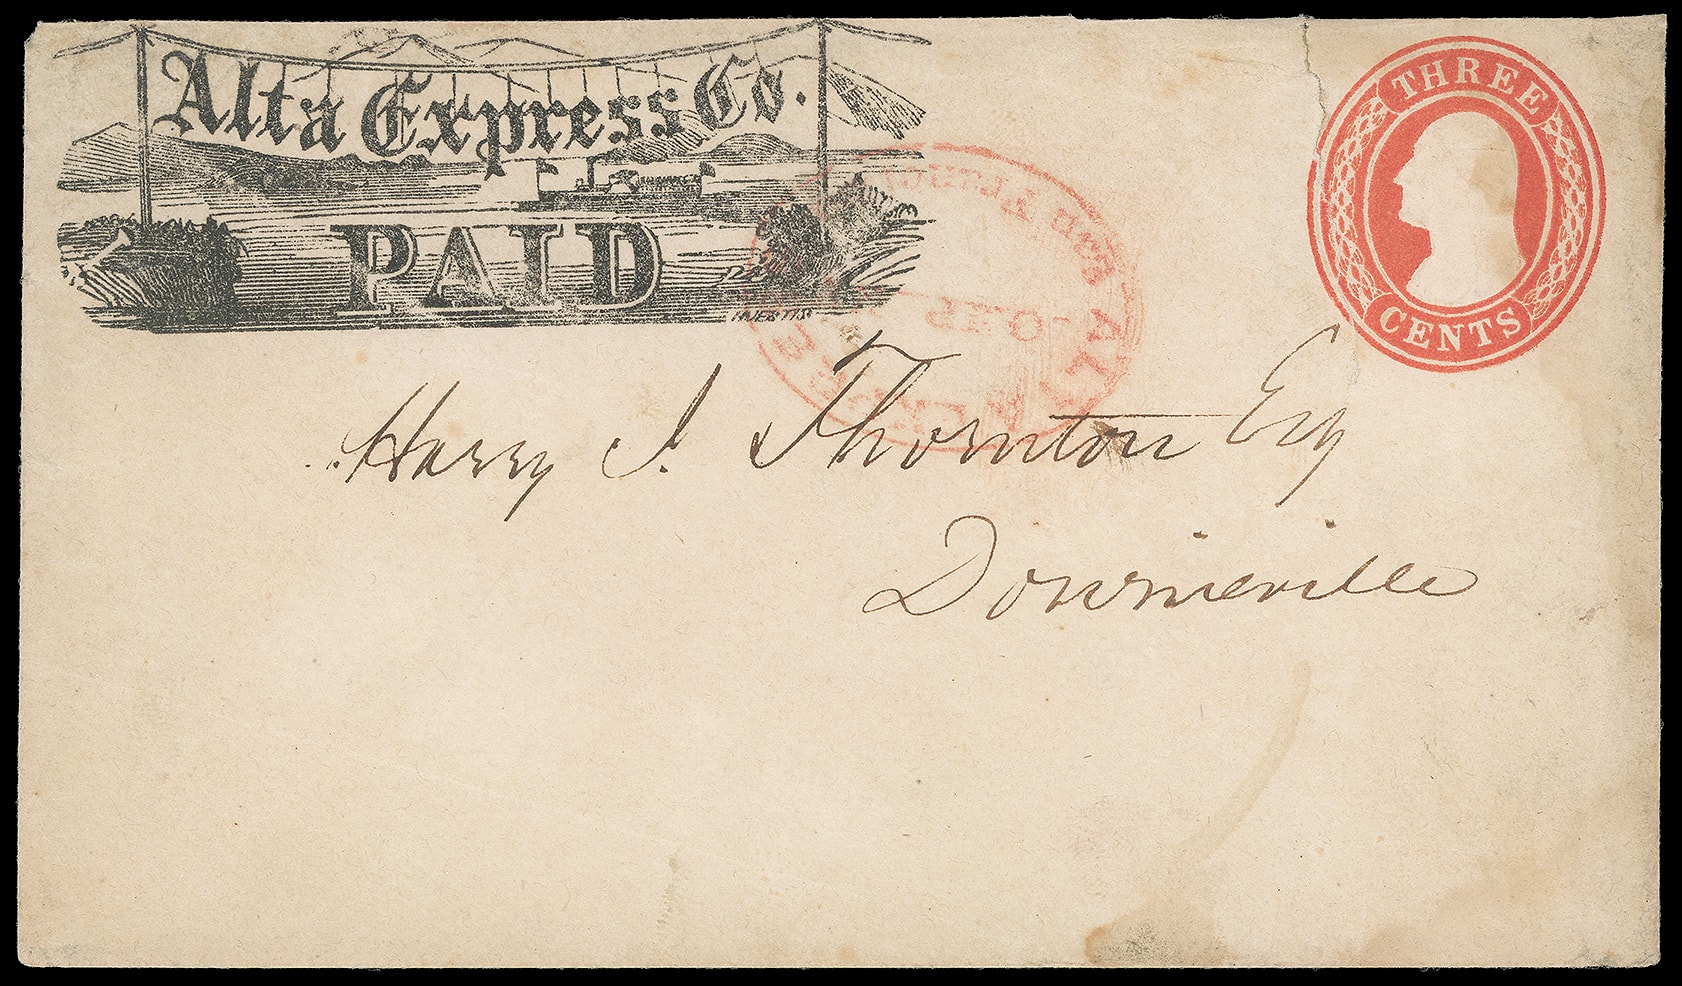 Alta Express Co.
PAID
THREE
CENTS
ALTA EXPRESS
Harry I. Thornton Esq
Downieville